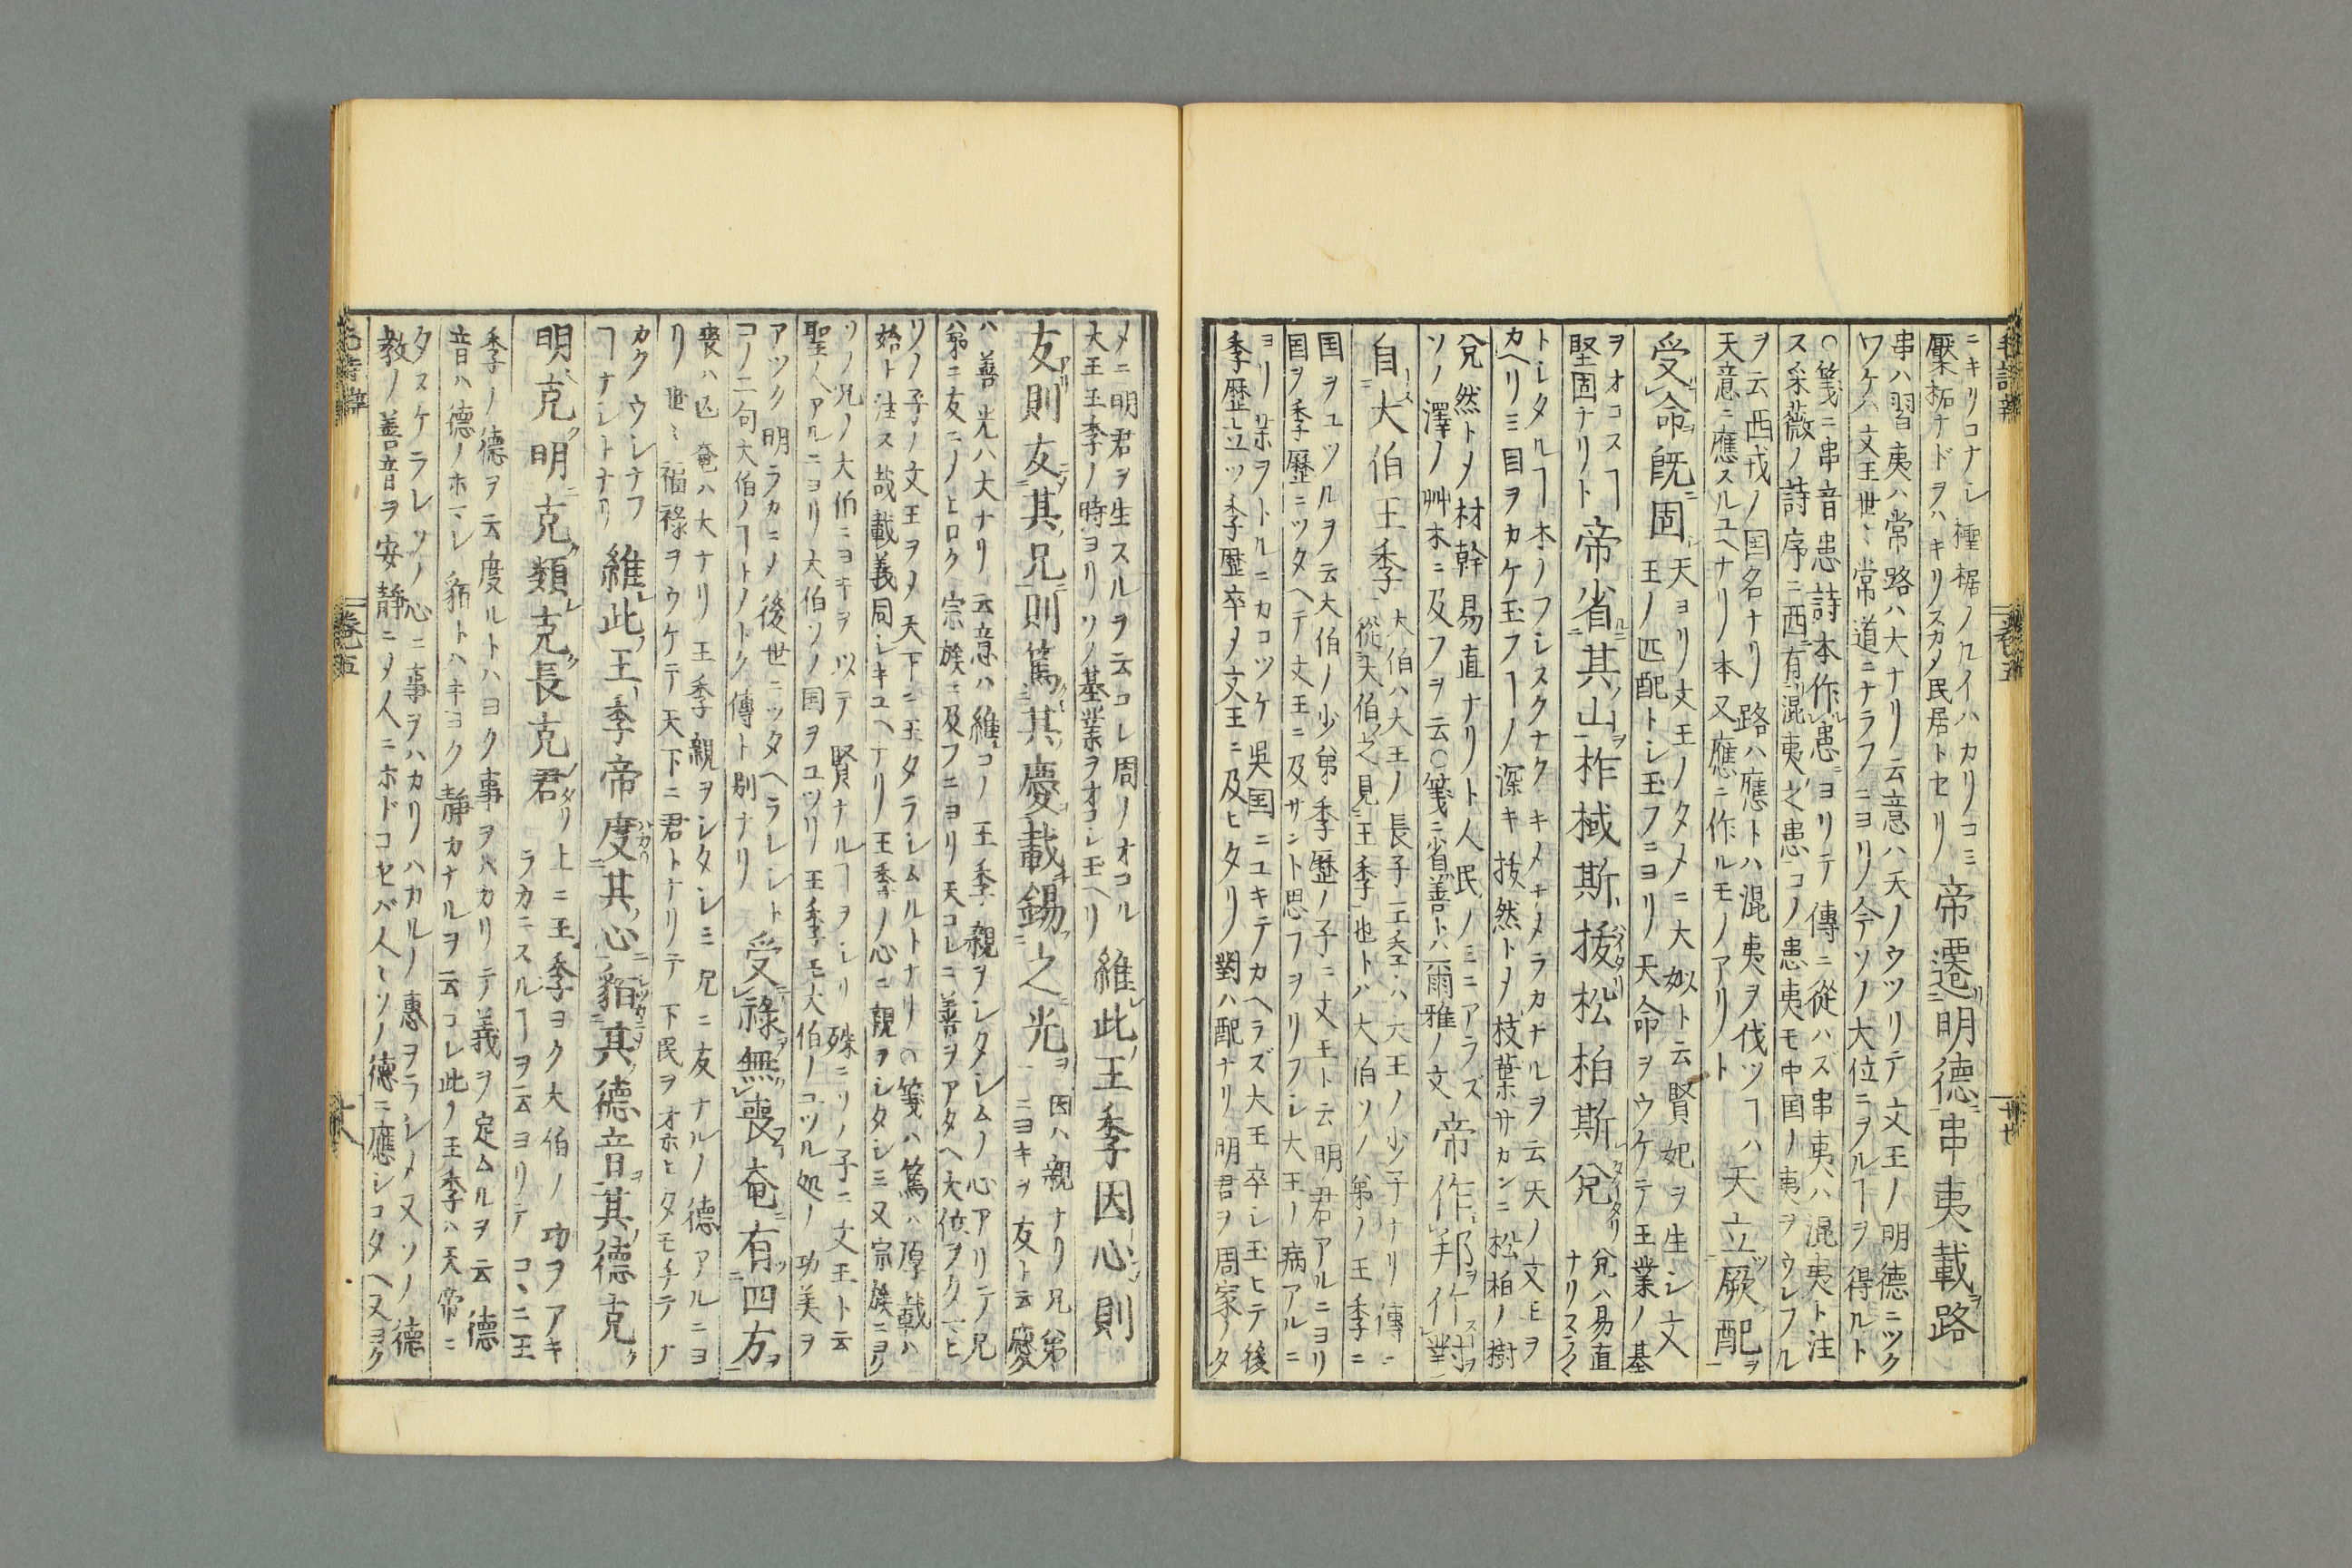 ニキリコナシ 檉椐ノ凡イハカリノコミ
檿柘ナドヲハキリスカメ民居トセリ 帝遷明德串夷載路
串ハ習夷ハ常路ハ大ナリ云意ハ天ノウツリテ文王ノ明德ニツク
ワケハ文王世〻常道ニナラフニヨリ今ソノ大位ニヲルヿヲ得ルト
○箋ニ串音患詩本作患ニヨリテ傳ニ從ハズ串夷ハ混夷ト注
ス采薇ノ詩序ニ西有混夷之患コノ患夷モ中国ノ夷ヲウレフル
ヲ云西戎ノ国名ナリ路ハ應トハ混夷ヲ伐ツヿハ
天意ニ應スルユヘナリ本又應ニ作ルモノアリト 天立厥配
受命既固 天ヨリ文王ノタメニ大姒ト云賢妃ヲ生シ文
王ノ匹配トシ玉フニヨリ天命ヲウケテ王業ノ基
ヲオコスヿ
堅固ナリト 帝省其山柞棫斯拔松柏斯兌 兌ハ易直
ナリスラ〱
トシタルヿ木ノフシスクナクキメナメラカナルヲ云天ノ文王ヲ
カヘリミ目ヲカケ玉フヿノ深キ拔然トメ枝葉サカンニ松柏ノ樹
兌然トメ材幹易直ナリト人民ノミニアラズ
ソノ澤ノ艸木ニ及フヲ云○箋ニ省善トハ爾雅ノ文 帝作邦作對
自大伯王季 大伯ハ大王ノ長子王季ハ大王ノ少子ナリ傳ニ
從大伯之見王季也トハ大伯ソノ弟ノ王季ニ
国ヲユツルヲ云大伯ノ少弟季歷ノ子ニ文王ト云明君アルニヨリ
国ヲ季歷ニツタヘテ文王ニ及サント思フヲリフシ大王ノ病アルニ
ヨリ藥ヲトルニカコツケ吳国ニユキテカヘラズ大王卒シ玉ヒテ後
季歷立ツ季歷卒メ文王ニ及ヒタリ對ハ配ナリ明君ヲ周家ノタ
メニ明君ヲ生スルヲ云コレ周ノオコル
大王王季ノ時ヨリソノ基業ヲオコシ玉ヘリ 維此王季因心則
友則友其兄則篤其慶載錫之光 因ハ親ナリ兄弟
ニヨキヲ友ト云慶
ハ善光ハ大ナリ云意ハ維コノ王季親ヲシタシムノ心アリテ兄
弟ニ友ニノヒロク宗族ニ及フニヨリ天コレニ善ヲアタヘ大位ヲクタヒ
ソノ子ノ文王ヲメ天下ニ王タラシムルトナリ○箋ハ篤ハ厚載ハ
始ト注ス哉載義同シキユヘナリ王季ノ心ニ親ヲシタシミ又宗族ニヨク
ソノ兄ノ大伯ニヨキヲ以テ賢ナルヿヲシリ殊ニソノ子ニ文王ト云
聖人アルニヨリ大伯ソノ国ヲユツリ王季モ大伯ノユツル処ノ功美ヲ
アツク明ラカニメ後世ニツタヘラレシト
コノ二句大伯ノヿトノトク傳ト別ナリ 受祿無喪奄有四方
喪ハ亾奄ハ大ナリ王季親ヲシタシミ兄ニ友ナルノ德アルニヨ
リ世〻福祿ヲウケテ天下ニ君トナリテ下民ヲオホヒタモチテナ
カクウシナフ
ヿナシトナリ 維此王季帝度其心貊其德音其德克
明克明克類克長克君 タリ上ニ王季ヨク大伯ノ功ヲアキ
ラカニスルヿヲ云ヨリテコヽニ王
季ノ德ヲ云度ルトハヨク事ヲハカリテ義ヲ定ムルヲ云德
音ハ德ノホマレ貊トハキヨク靜カナルヲ云コレ此ノ王季ハ天帝ニ
タスケラレソノ心ニ事ヲハカリハカルノ惠ヲラシメ又ソノ德
教ノ善音ヲ安靜ニメ人ニホドコセバ人〻ソノ德ニ應シコタヘ又ヨク
卷五